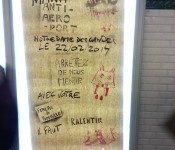 ANTI-
AERO
PORT
NOTRE DAME DES LANDES
LE 22.02.2014
ARRÊTEZ
DE NOUS
MENTIR
AVEC VOTRE
IL FAUT
RALENTIR